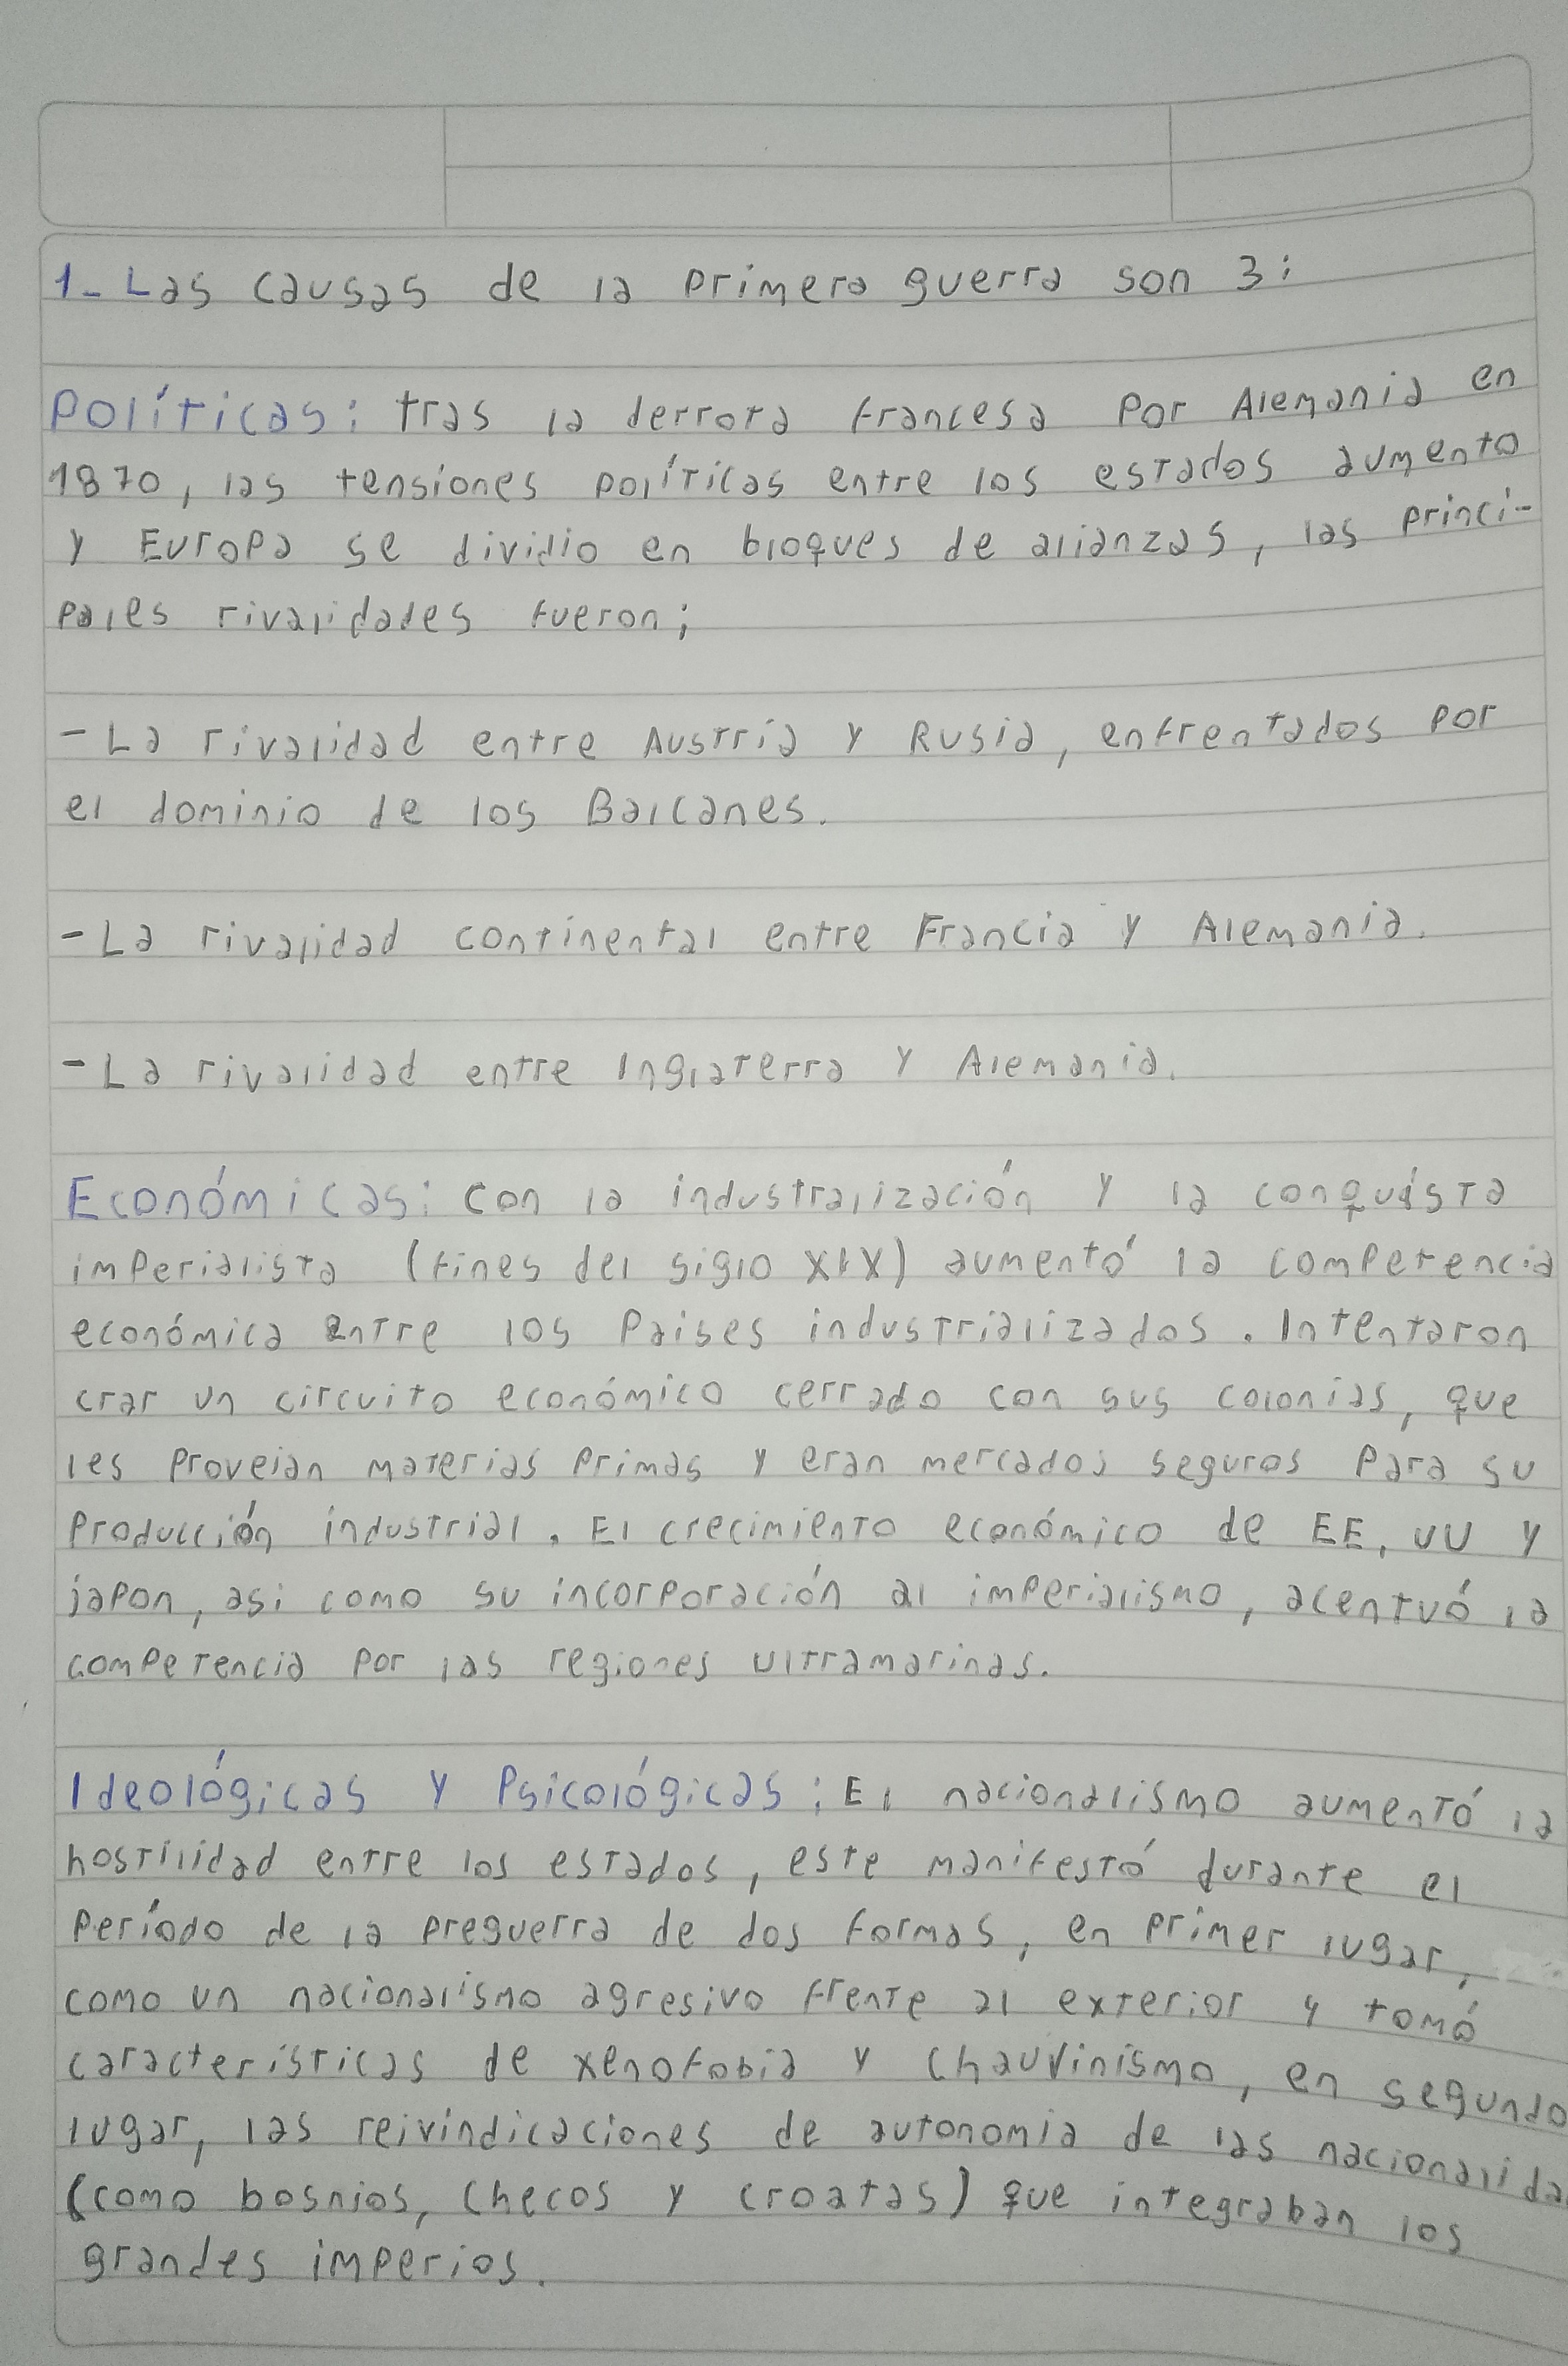 1- Las causas de la primera guerra son 3:
Políticas: tras la derrota francesa por Alemania en
1870, las tensiones políticas entre los estados aumento
y Europa se dividio en bloques de alianzas, las princi-
pales rivalidades fueron;
- La rivalidad entre Austria y Rusia, enfrentados por
el dominio de los Balcanes.
- La rivalidad continental entre Francia y Alemania.
- La rivalidad entre Inglaterra y Alemania.
Económicas: con la industralización y la conquista
imperialista (fines del siglo XIX) aumentó la competencia
económica entre los Paises industrializados. Intentaron
crar un circuito económico cerrado con sus colonias, que
les proveian materias primas y eran mercados seguros para su
Producción industrial. El crecimiento económico de EE, UU y
japon, asi como su incorporación al imperialismo, acentuó la
competencia por las regiones ultramarinas.
Ideológicas y Psicológicas: El nacionalismo aumentó la
hostilidad entre los estados, este manifestó durante el
Período de la preguerra de dos formas, en primer lugar,
como un nacionalismo agresivo frente al exterior y tomó
características de xenofobia y chauvinismo, en segundo
lugar, las reivindicaciones de autonomia de las nacionalida
(como bosnios, checos y croatas) que integraban los
grandes imperios.